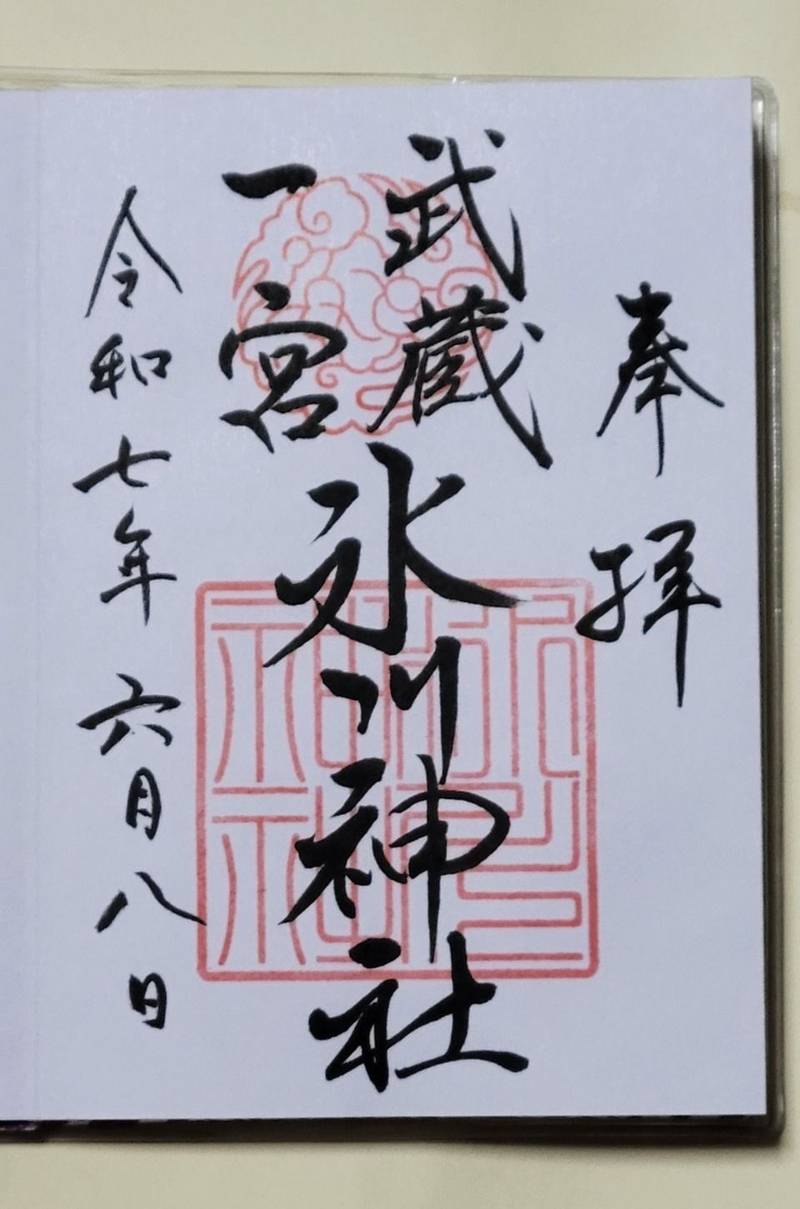 奉拝
武蔵
一宮
氷川神社
令和七年六月八日